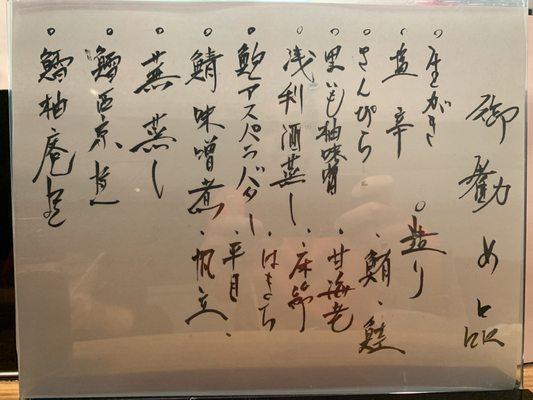 御勧め品
○生がき
○塩辛
○きんぴら
○里いも柚味噌
○浅利酒蒸し
○鮑アスパラバター
○鯖味噌煮
○蕪蒸し
○西京焼
○柚庵焼
○造り
・鮪、鮭
・甘海老
・床節
・はまち
・平目
・帆立、